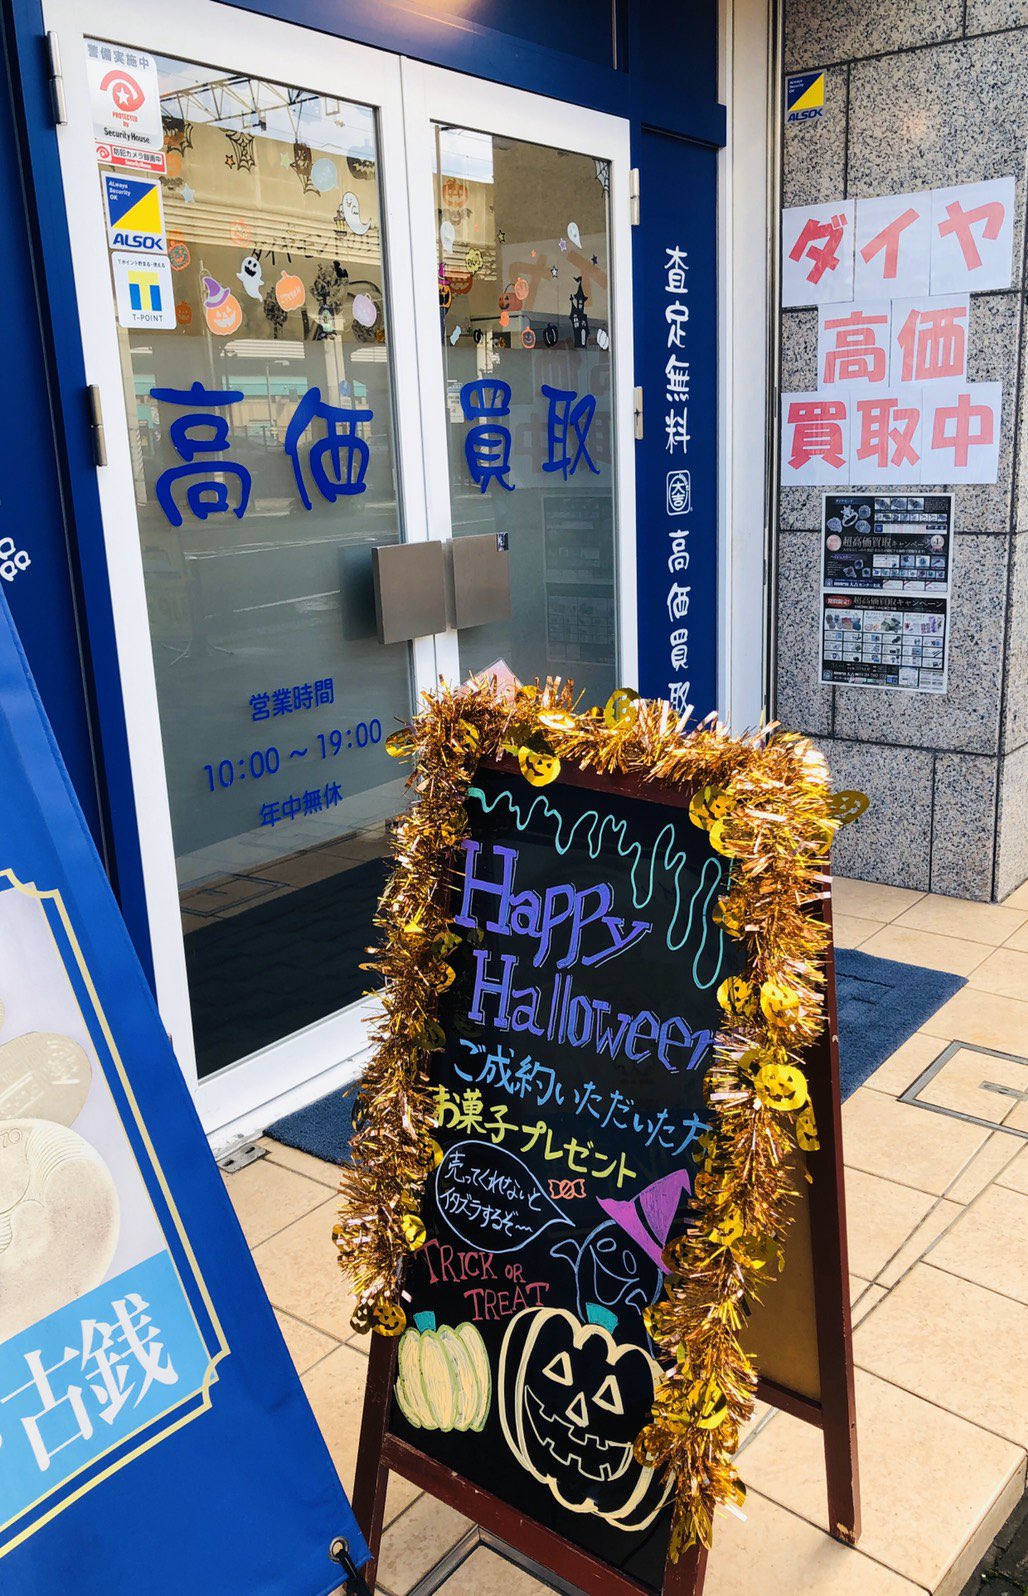 警備実施中
PROTECTED
by
Security House
防犯カメラ録画中
ALways
Security
OK
ALSOK
Tポイント貯まる・使える
T
T-POINT
高価買取
営業時間
10:00 ~ 19:00
年中無休
査定無料
大吉
高価買取
ALways
Security
OK
ALSOK
ダイヤ
高価
買取中
超高価買取キャンペーン
超高価買取キャンペーン
品
古銭
Happy
Halloween
ご成約いただいた方
お菓子プレゼント
売ってくれないと
イタズラするぞ〜
TRICK OR
TREAT